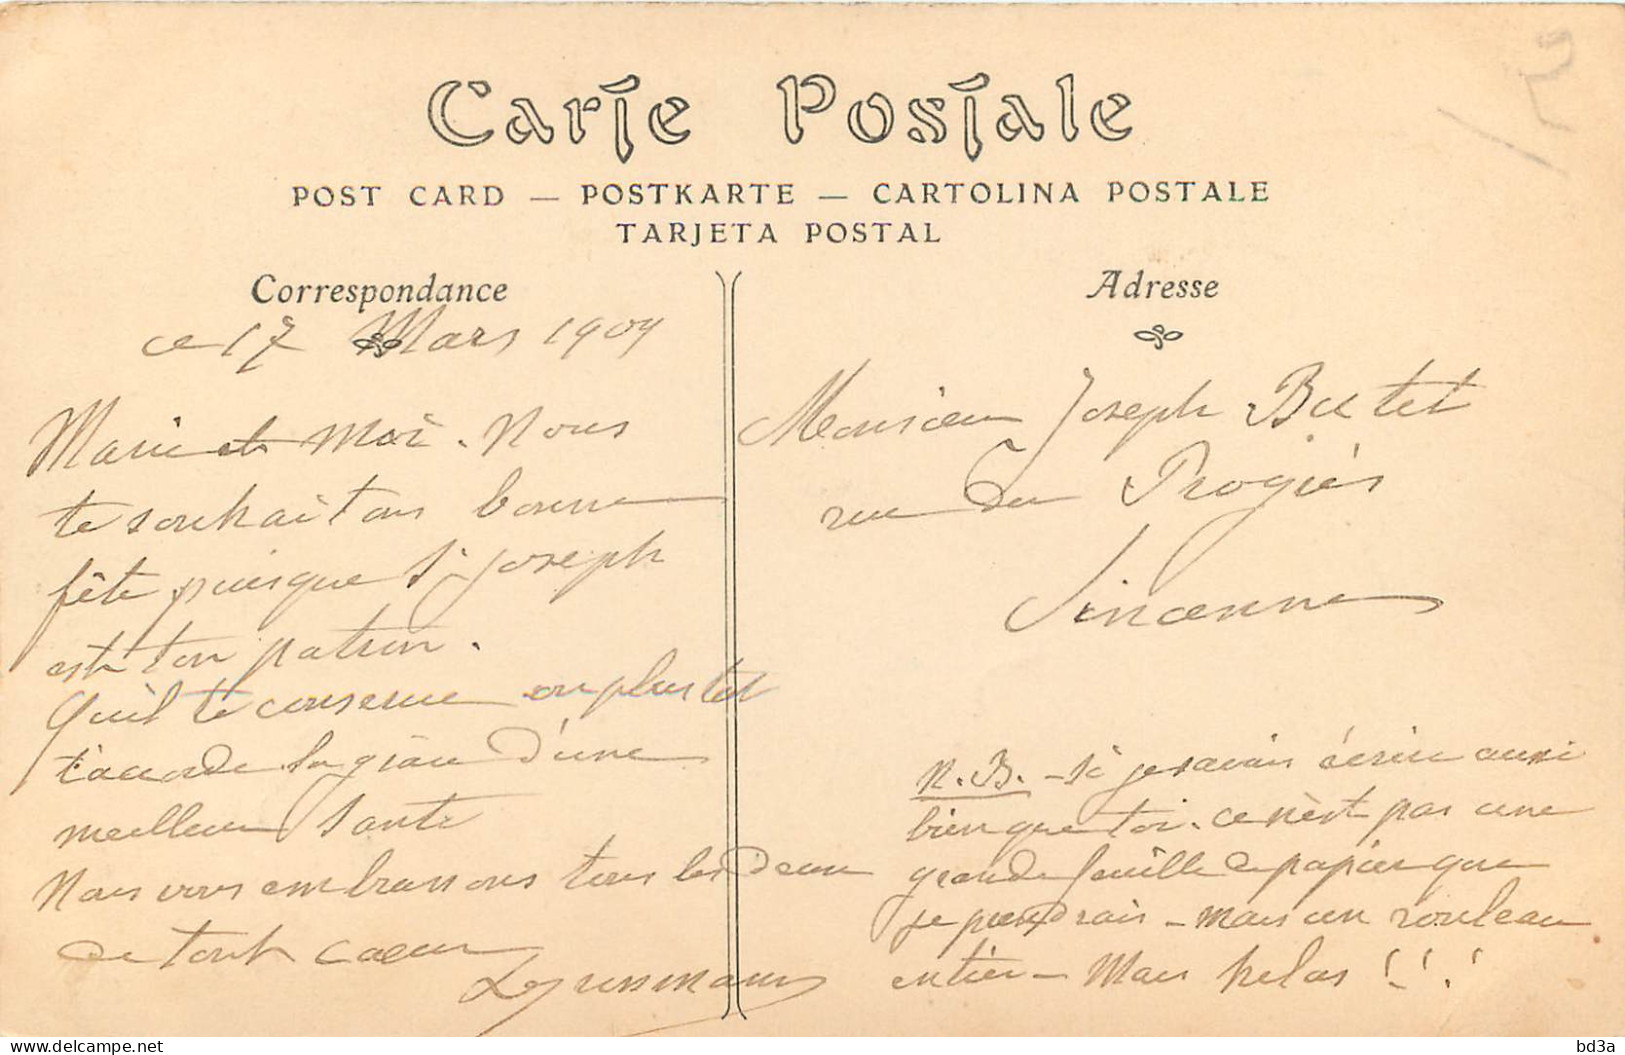 Carte Postale
POST CARD — POSTKARTE — CARTOLINA POSTALE
TARJETA POSTAL
Correspondance
ce 17 Mars 1909
Marie et Moi. Nous
te souhaitons bonne
fête puisque St Joseph
est ton patron.
Qu'il te conserve ou plustot
t'accorde la grâce d'une
meilleure Santé
Nous vous embrassons tous les deux
de tout coeur
Adresse
Monsieur Joseph Butet
rue du Progrès
Vincennes
N.B. - Si je savais écrire aussi
bien que toi. ce n'est pas une
grande feuille de papier que
je prendrais - mais un rouleau
entier - Mais helas !!!
bd3a